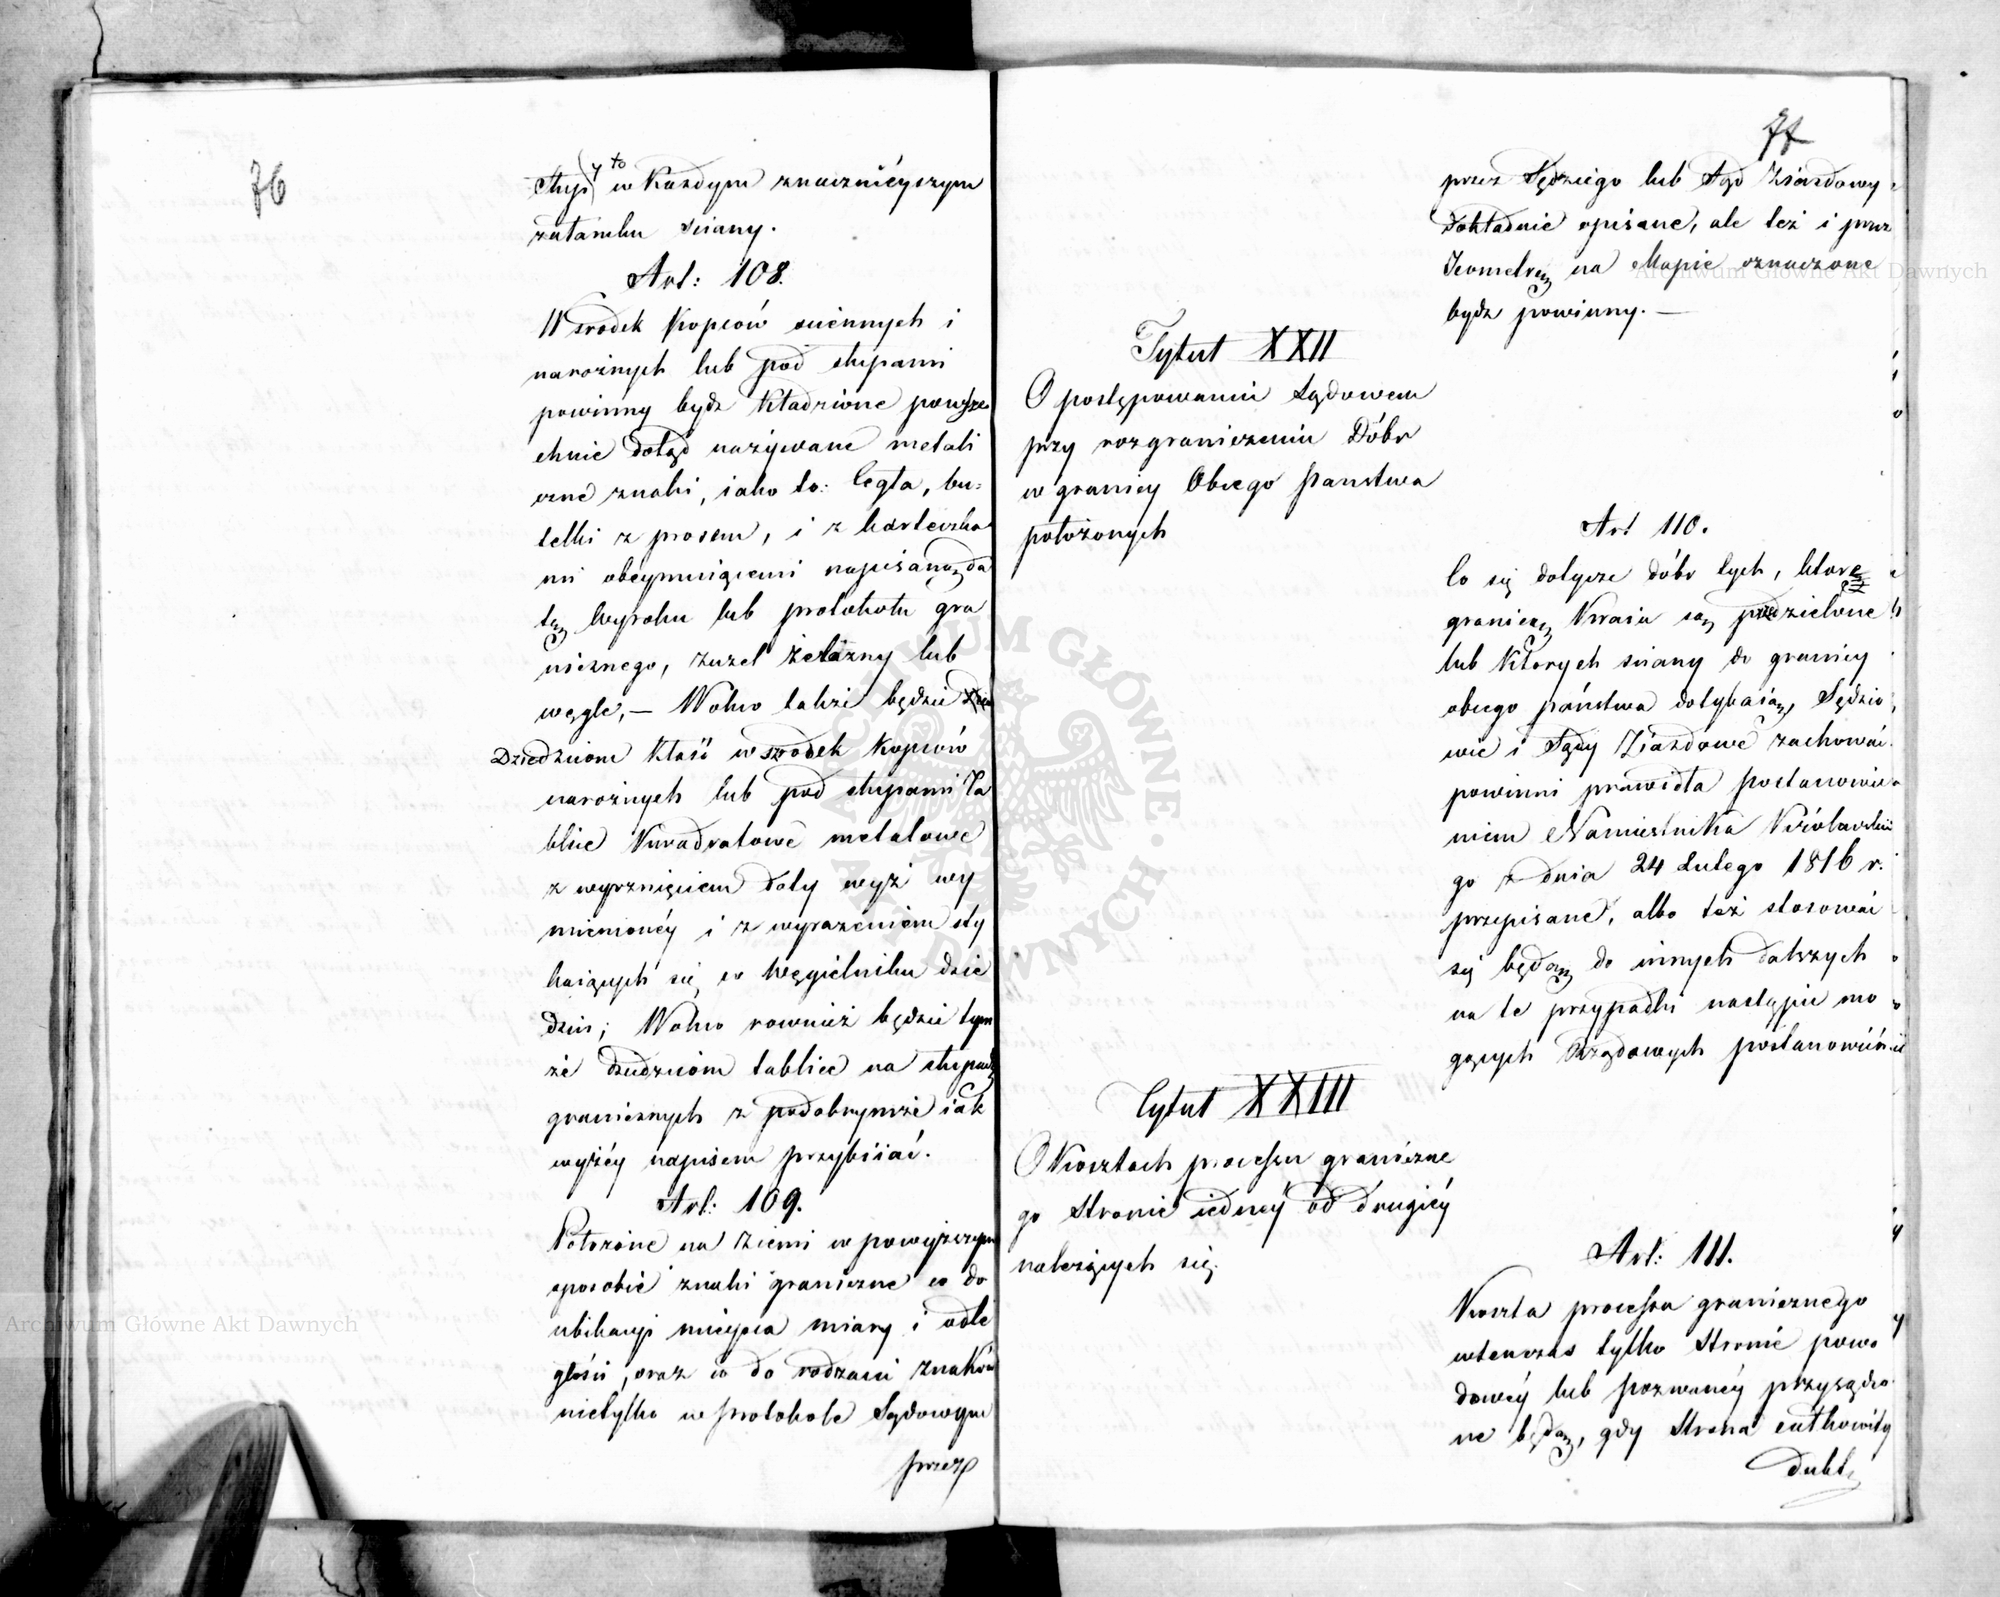 76
słupy to w Każdym znacznieyszym
załamku sciany.
Art: 108.
W srodek Kopców sciennych i
narożnych lub pod słupami
powinny bydź Kładzione powsze
chnie dotąd nazywane metali
czne znaki, iako to: Cegła, bu=
telki z prosem, i z karteczka
mi obeymuiącemi napisaną da
tą Wyroku lub protokołu gra
nicznego, żużel żelazny lub
węgle, — Wolno także będzie
Dziedzicom Kłaść w srodek Kopców
narożnych lub pod słupami Ta
blice Kwadratowe metalowe
z wyrznięciem daty wyż wy
mienionéy i z wyrażeniem sty
kaiących się w Węgielniku dzie
dzin; Wolno rownież będzie tym
że dziedzicom tablice na słupach
granicznych z podobnymże iak
wyżéy napisem przybiiać.
Art: 109.
Położone na Ziemi w powyższym
sposobie znaki graniczne co do
ubikacyi mieysca miary i odle
głości, oraz co do rodzaiu Znaków
nietylko w protokole Sądowym
przez
77
przez Sędziego lub Sąd Ziazdowy
dokładnie opisane, ale też i przez
Jeometrą na Mapie oznaczone
bydz powinny. —
Tytuł XXII
O postępowaniu Sądowem
przy rozgraniczeniu Dóbr
w granicy Obcego Panstwa
położonych
Art 110.
Co się dotycze dóbr tych, które
granicą Kraiu są podzielone
lub Których sciany do granicy
obcego państwa dotykaią, Sędzio
wie i Sądy Ziazdowe zachować
powinni prawidła postanowie
niem Namiestnika Królewskie
go z dnia 24 Lutego 1816 r.
przepisane, albo też stosować
się będą do innych dalszych
na te przypadki nastąpić mo
gących Rządowych postanowień
Tytuł XXIII
O Kosztach processu graniczne
go Stronie iednéy od drugiéy
należących się.
Art: 111.
Koszta processu granicznego
wtenczas tylko Stronie powo
dowéy lub pozwanéy przysądzo
ne będą, gdy Strona